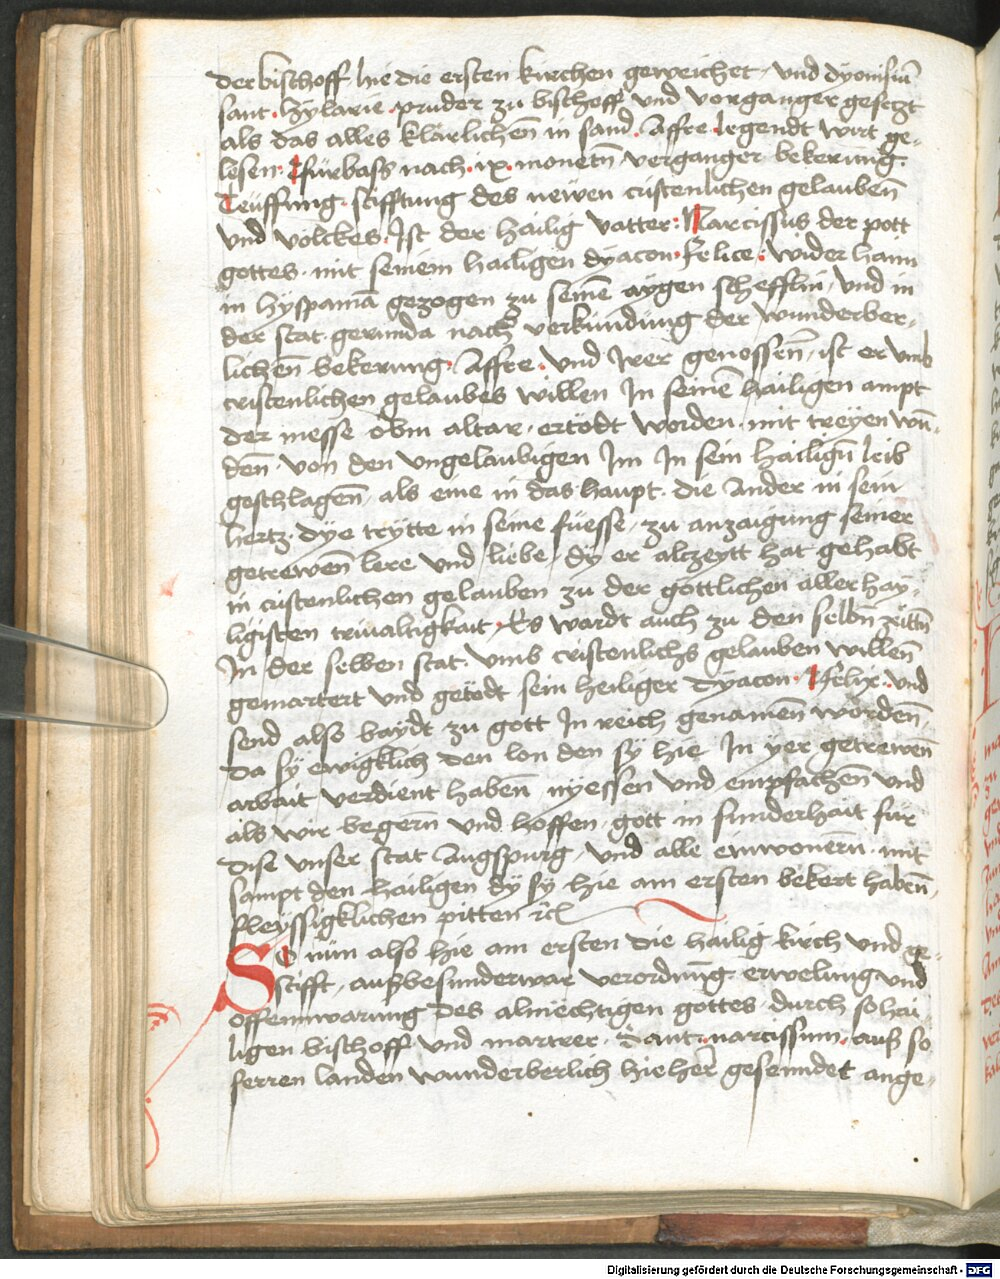 der bischoff hie die ersten kirchen geweichet / vnd dyonisiū
sant . Hylarie . pruder zu bischoff vnd vorganger gesetzt
als das alles klarlichen̄ in sand . Affre legendt wirt ge-
lesen : fürbass nach . ix . monetn̄ verganger bekerung .
Teuffung . stifftung des newen cristenlichen gelauben̄
vnd volckes . Ist der hailig vatter : Narcissus der pott
gottes . mit seinem hailigen dyacon . Felice : wider haim
in hyspaniā gezogen zu seinē aygen scheffllin / vnd in
der stat gerunda nach verkundung der wunderber-
lichen̄ bekerung . Affre . vnd Irer genossen̄ / ist er vmb
cristenlichen gelaubes willen In seinē hailigen ampt
der messe obm altar / ertodt worden . mit treyen wū-
den̄ . von den vngelaubigen Im In sein hailign̄ leib
geschlagen̄ / als eine in das haupt . die ander in sein
hertz . dye trytte in seine füesse / zu anzaigung seiner
getrewen̄ lere vnd liebe / dy er alzeytt hat gehabt
in cristenlichen gelauben zu der gottlichen aller hay-
ligisten triualtigkait / Es wardt auch zu den selbn̄ zeittn̄
In der selben stat . vmb cristenlichs gelauben willen̄
gemartert vnd getodt sein heiliger dyacon . Felix . vnd
send also bayde zu gott In reich genamen̄ worden̄ .
da sy ewigklich den lon den sy hie In yer getrewen̄
arbait verdient haben̄ nyessen vnd empfachen̄ vnd
als wir begern̄ vnd hoffen / gott in sunderhait für
dise vnser stat Augspurg / vnd alle einwonern̄ . mit
sampt den hailigen dy sy hie am ersten bekert haben̄ .
fleyssigklichen pitten rc̄
So nün also hie am ersten die hailig kirch vnd ge-
stifft / auss besunderwar verordnūg erwelung vnd
offennwarung des almechtigen gottes . durch so hai-
ligen bischoff vnd martrer . Sant . narcissum . auss so
ferren landen wunderberlich hieher gesenndet ange-
Digitalisierung gefördert durch die Deutsche Forschungsgemeinschaft - DFG